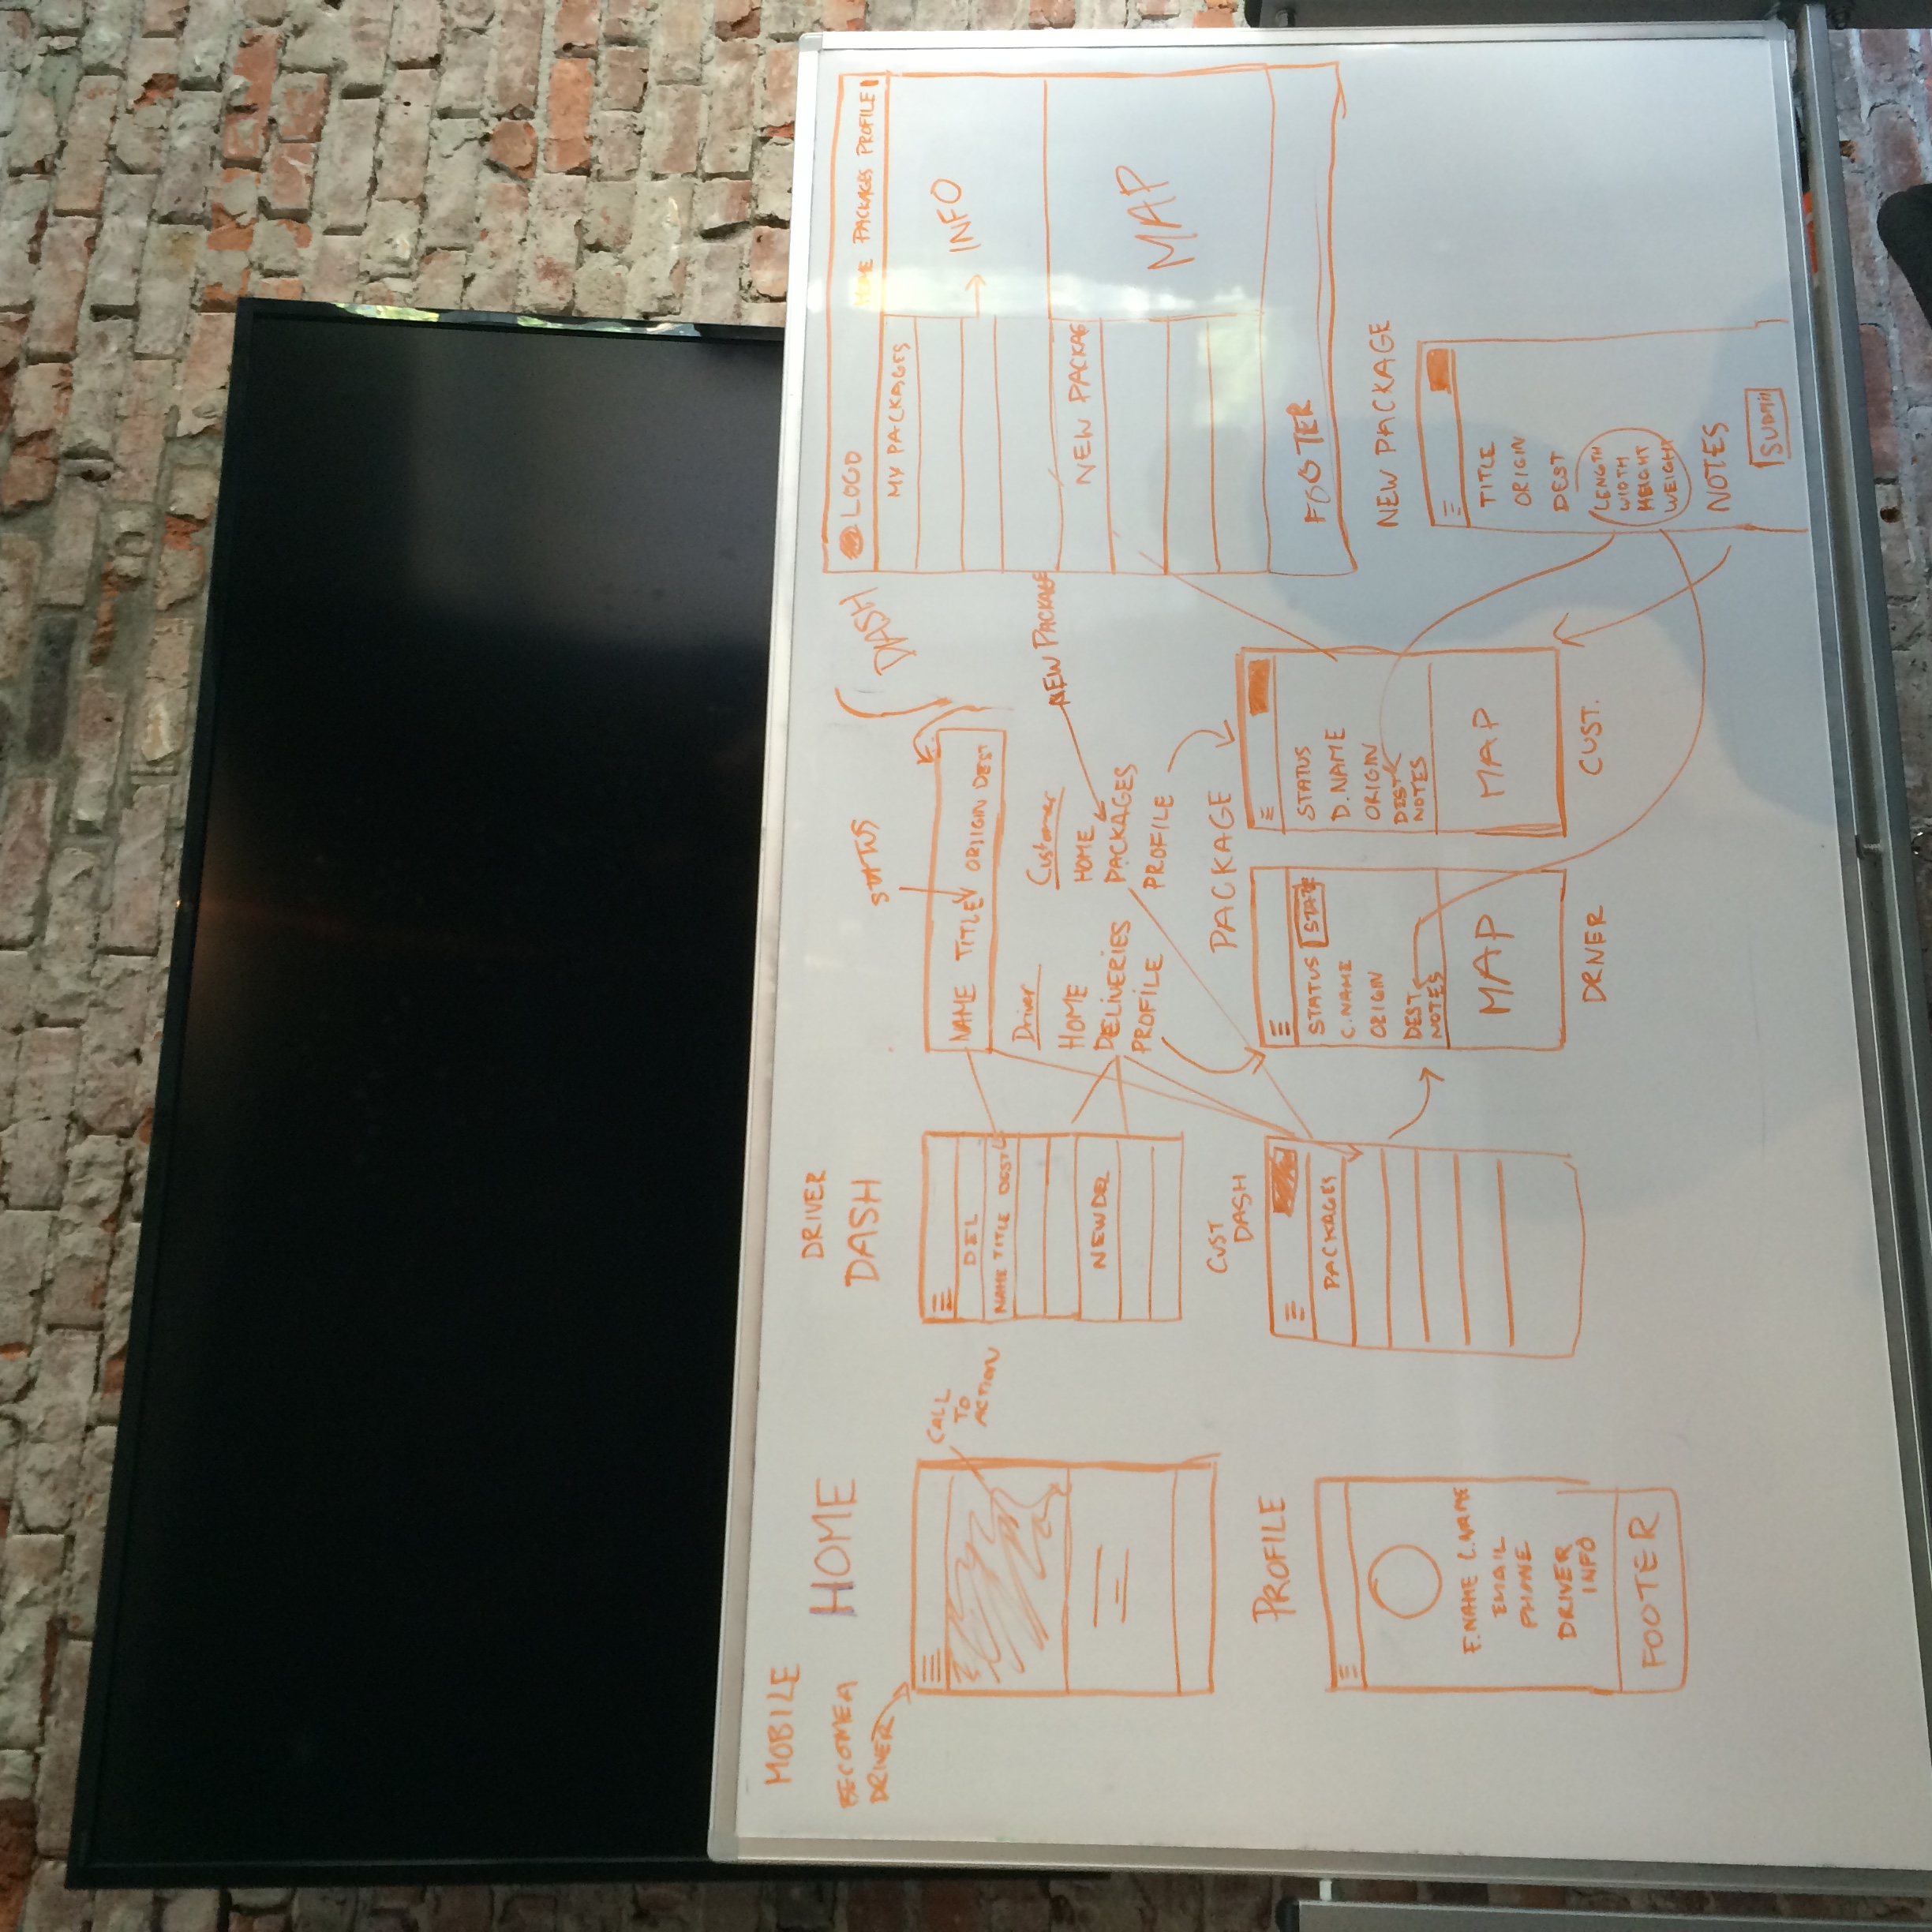 MOBILE
HOME
BECOME A
DRIVER
CALL
TO
ACTION
PROFILE
F.NAME L.NAME
EMAIL
PHONE
DRIVER
INFO
FOOTER
DRIVER
DASH
DEL
NAME TITLE DEST
NEW DEL
CUST
DASH
PACKAGES
STATUS
NAME TITLE ORIIGIN DEST
Driver
HOME
DELIVERIES
PROFILE
Customer
HOME
PACKAGES
PROFILE
NEW PACKAGE
PACKAGE
STATUS STATE
C.NAME
ORIGIN
DEST
NOTES
MAP
DRIVER
STATUS
D.NAME
ORIGIN
DEST
NOTES
MAP
CUST.
DASH
LOGO
HOME PACKAGES PROFILE
MY PACKAGES
INFO
NEW PACKAG
MAP
FOOTER
NEW PACKAGE
TITLE
ORIGIN
DEST
LENGTH
WIDTH
HEIGHT
WEIGHT
NOTES
SUBMIT